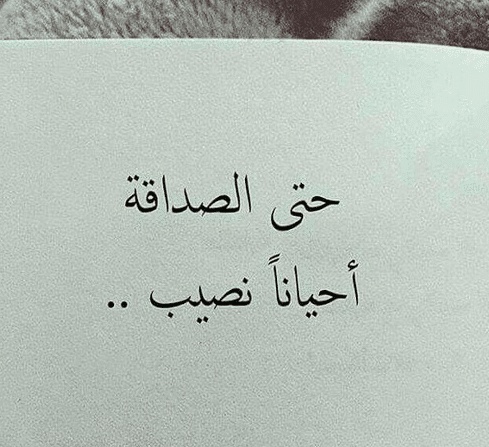 حتى الصداقة
أحياناً نصيب ..